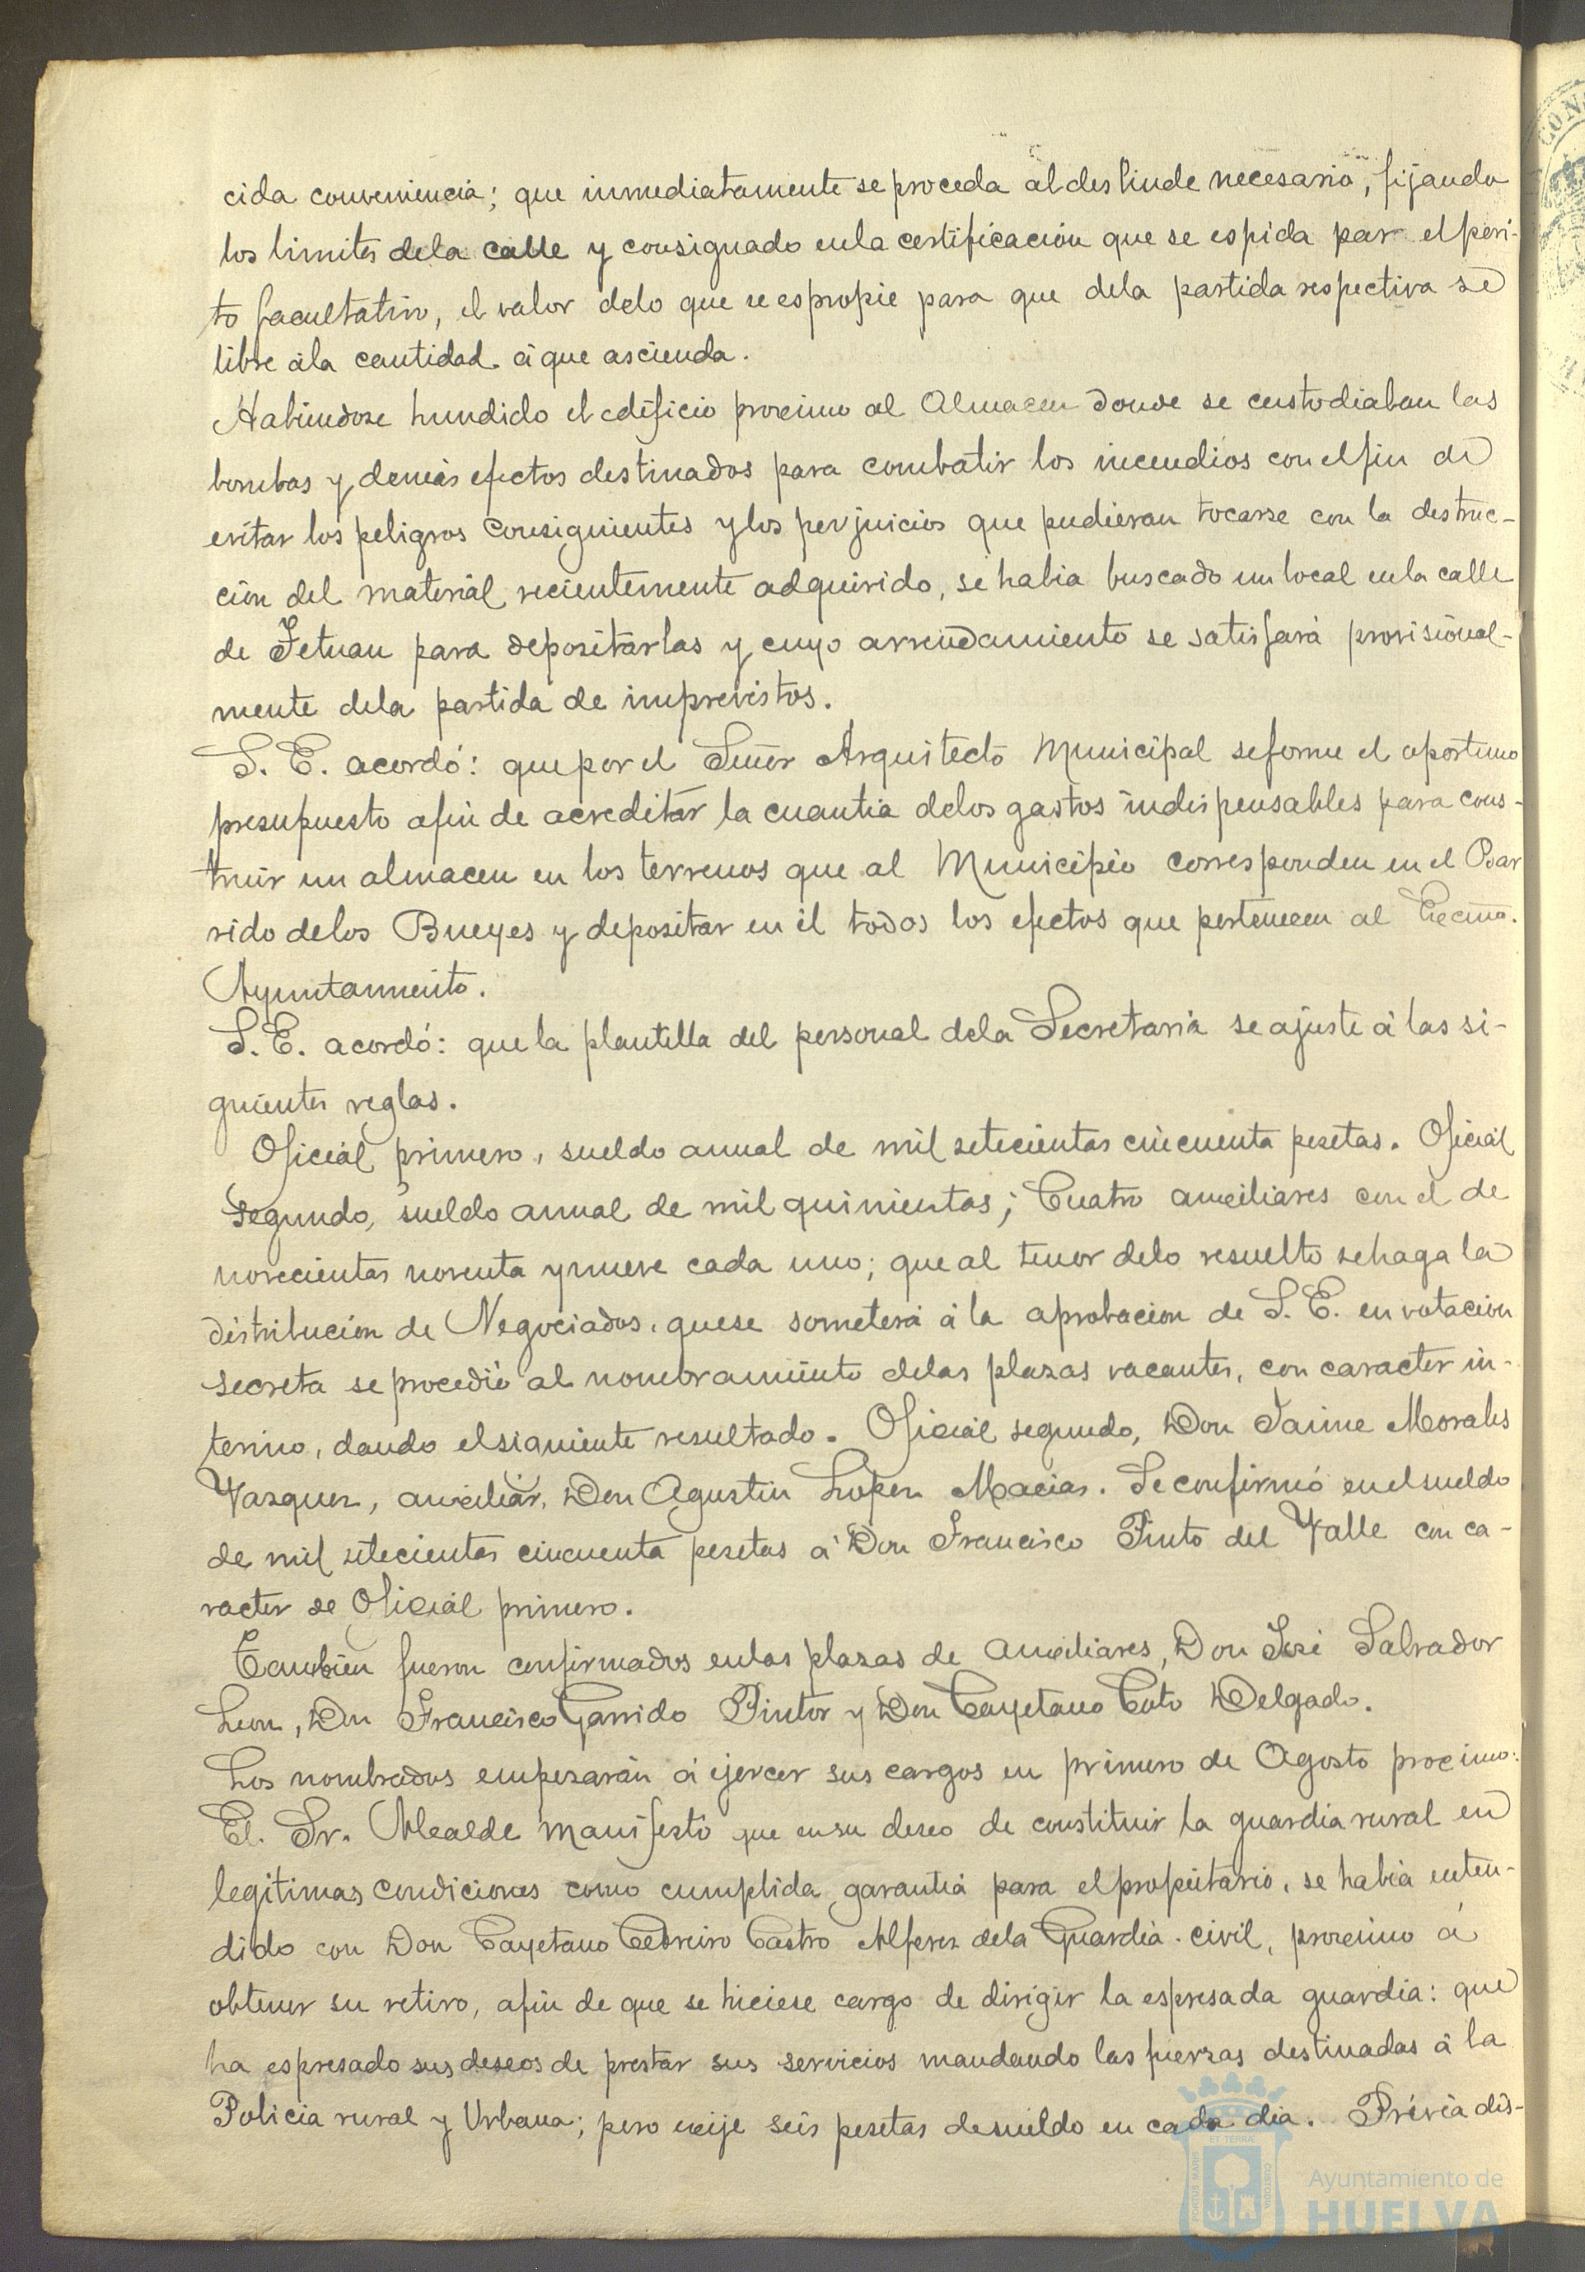 cida conveniencia; que inmediatamente se proceda al deslinde necesario, fijando
los limites dela calle y consignado enla certificación que se espida por el peri-
to facultativo, el valor delo que se espropie para que dela partida respectiva se
libre ála cantidad á que ascienda.
Habiendose hundido el edificio procimo al Almacen donde se custodiaban las
bombas y demás efectos destinados para combatir los incendios con el fin de
evitar los peligros consiguientes y los perjuicios que pudieran tocarse con la destruc-
ción del material recientemente adquirido, se habia buscado un local enla calle
de Tetuan para depositarlas y cuyo arrendamiento se satisfará provisional-
mente dela partida de imprevistos.
S. E. acordó: que por el Señor Arquitecto Municipal se forme el oportuno
presupuesto afin de acreditar la cuantia delos gastos indispensables para cons-
truir un almacen en los terrenos que al Municipio corresponden en el
rido delos Bueyes y depositar en él todos los efectos que pertenecen al Excmo.
Ayuntamiento.
S. E. acordó: que la plantilla del personal dela Secretaria se ajuste á las si-
guientes reglas.
Oficial primero, sueldo anual de mil setecientas cincuenta pesetas. Oficial
segundo, sueldo anual de mil quinientas; Cuatro auxiliares con el de
novecientas noventa y nueve cada uno; que al tenor delo resuelto se haga la
distribución de Negociados, que se someterá á la aprobacion de S. E. en votacion
secreta se procedió al nombramiento delas plazas vacantes, con caracter in-
terino, dando el siguiente resultado. Oficial segundo, Don Jaime Morales
Vazquez, auxiliar, Don Agustin Lopez Macias. Se confirmó en el sueldo
de mil setecientas cincuenta pesetas á Don Francisco Pinto del Valle con ca-
racter de Oficial primero.
Tambien fueron confirmados enlas plazas de auxiliares, Don José Salvador
Leon, Don Francisco Garrido Pintor y Don Cayetano Coto Delgado.
Los nombrados empezarán á ejercer sus cargos en primero de Agosto procimo.
El Sr. Alcalde manifestó que en su deseo de constituir la guardia rural en
legitimas condiciones como cumplida garantia para el propietario, se habia enten-
dido con Don Cayetano Cebreiro Castro Alferez dela Guardia civil, procimo á
obtener su retiro, afin de que se hiciese cargo de dirigir la espresada guardia: que
ha espresado sus deseos de prestar sus servicios mandando las fuerzas destinadas á la
Policia rural y Urbana; pero exije seis pesetas de sueldo en cada dia. Prévia dis-
Ayuntamiento de
HUELVA